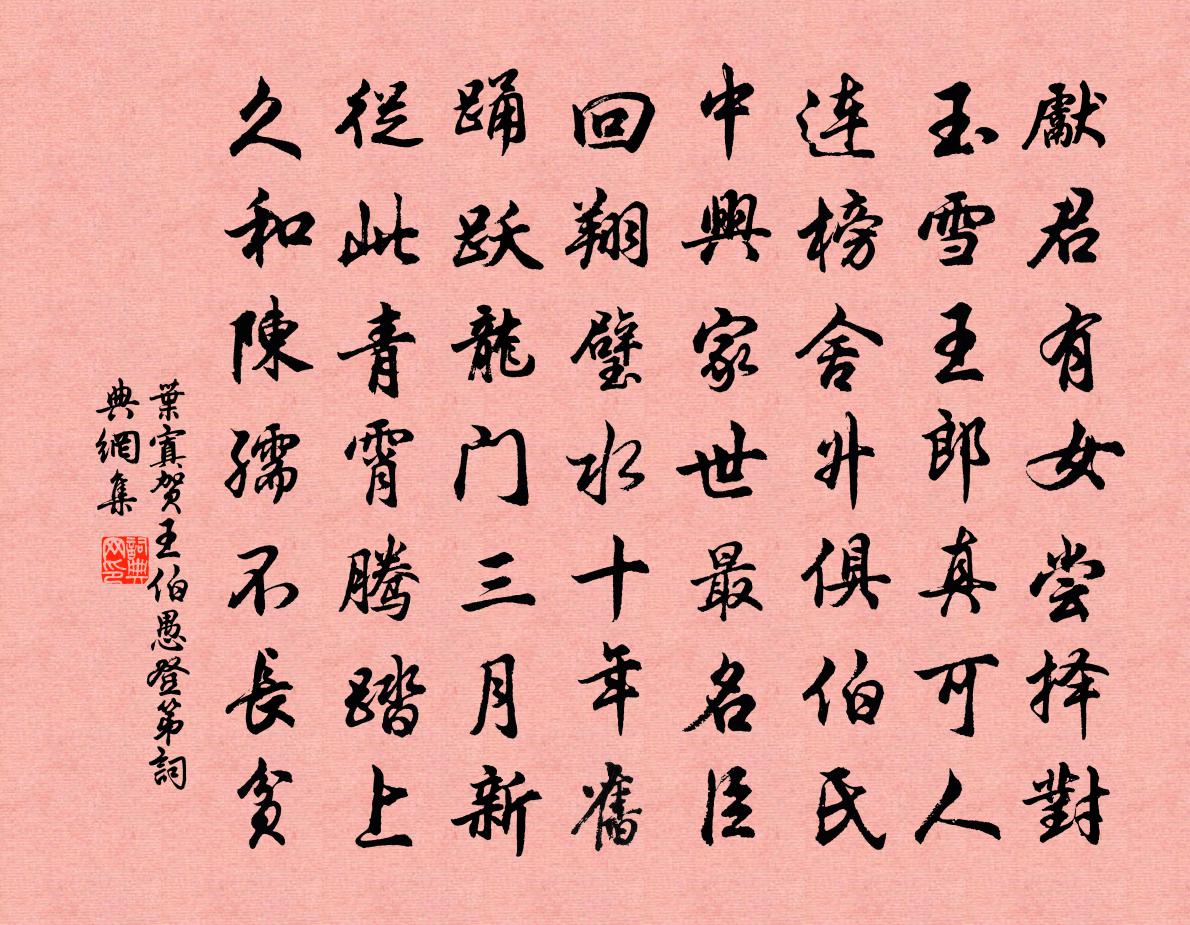 獻君有女尝择對
玉雪王郎真可人
连榜舍升俱伯氏
中興家世最名臣
回翔璧水十年舊
踊跃龍门三月新
從此青霄腾踏上
久和陳孺不長贫
葉寘贺王伯愚登第詞
典網集
詞典
网印